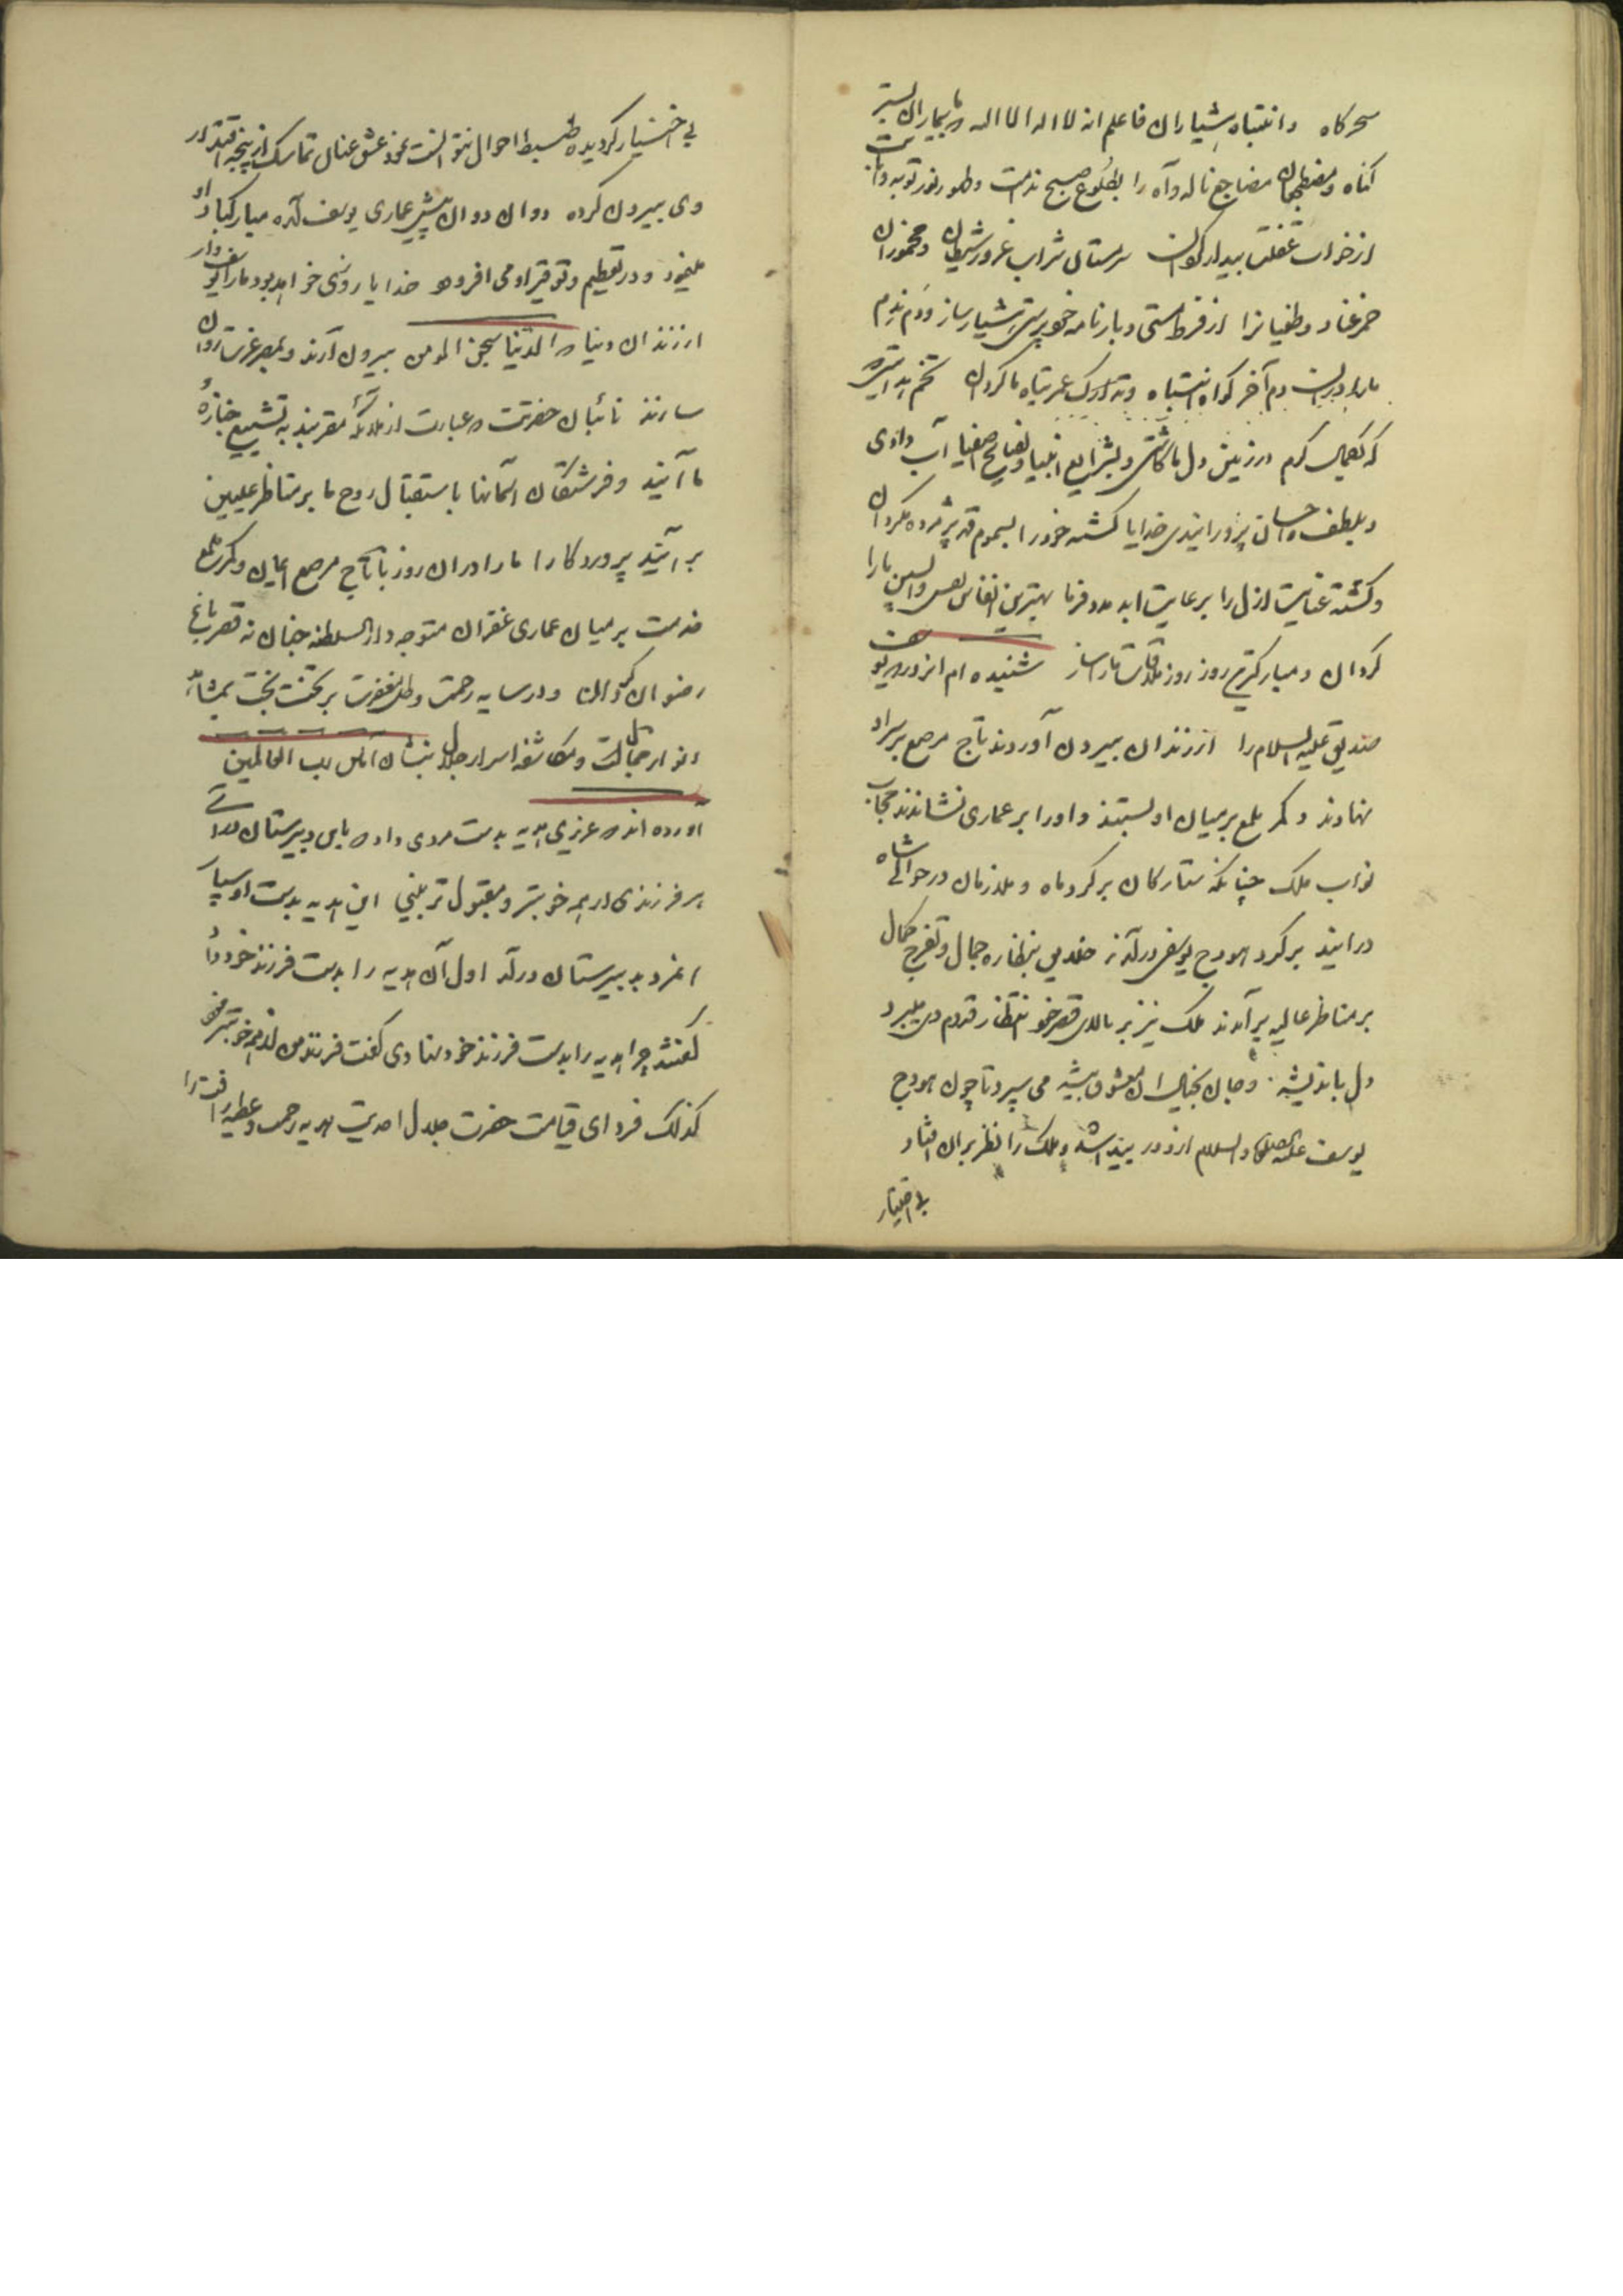 سحرکاه و انتباه هشیاران فاعلم انه لا اله الا الله که بیماران بستر
کناه و مضطجعان مضاجع ناله و آه را بطلوع صبح ندامت و ظهور نور توبه و انابت
از خواب غفلت بیدار کردان سرمستان شراب غرور شیطان و مخموران
خمر عناد و طغیانرا از فرط مستی و بارنامه خودپرستی هشیار ساز و دم ندم
ما را درین دم آخر کواه انتباه و تدارک عمر تباه ما کردان تخم هدایتی
که بکمال کرم در زمین دل ما کاشتی و بشرایع انبیا و نصایح اصفیا آب دادی
و بلطف و احسان پرورانیدی خدایا کشته خود را بسموم قهر پژمرده مکردان
و کشته عنایت ازل را برعایت ابد مدد فرما بهترین انفاس نفس واپسین ما را
کردان و مبارکترین روز روز ملاقات ما ساز شنیده ام انروز که یوسف
صدیق علیه السلام را از زندان بیرون آوردند تاج مرصع بر سر او
نهادند و کمر ملمع بر میان او بستند و او را بر عماری نشاندند حجاب
نواب ملک چنانکه ستارکان بر کرد ماه و ملازمان در حوالی شاه
درایند بر کرد هودج یوسف درآمدند خلایق بنظاره جمال و تفرج کمال
بر مناظر عالیه برآمدند ملک نیز بر بالای قصر خود انتظار قدوم وی میبرد
دل باندیشه و جان بخیال آن معشوق پیشه می سپرد تا چون هودج
یوسف علیه الصلوة والسلام از دور پیدا شد و ملک را نظر بران افتاد
بی اختیار
بی اختیار کردیده ضبط احوال نتوانست نمود عشق عنان تماسک از پنجه اقتدار
وی بیرون کرده دوان دوان پیش عماری یوسف آمده مبارکباد او
مینمود و در تعظیم و توقیر او می افزود خدایا روزی خواهد بود ما را یوسف وار
از زندان دنیا که الدنیا سجن المومن بیرون آرند و بمصر عزت روان
سازند نائبان حضرتت که عبارت از ملائکه مقربند به تشییع جنازهٔ
ما آیند و فرشتکان آسمانها باستقبال روح ما بر مناظر علیین
برآیند پروردکارا ما را دران روز با تاج مرصع ایمان و کمر ملمع
خدمت بر میان عماری غفران متوجه دارالسلطنه جنان نه قصر باغ
رضوان کردان و در سایه رحمت و ظل مغفرت بر تخت بخت بمشاهدۀ
انوار جمالت و مکاشفه اسرار جلال بنشان آمین رب العالمین
آورده اند که عزیزی هدیه بدست مردی داد که باین دبیرستان درآی
هر فرزندی از همه خوبتر و مقبول تر بینی این هدیه بدست او سپار
آنمرد بدبیرستان درآمد اول آن هدیه را بدست فرزند خود داد
گفتند چرا هدیه را بدست فرزند خود نهادی گفت فرزند من از همه خوبتر
کذلک فردای قیامت حضرت جلال احدیت هدیه رحمت و عطیه رافت را